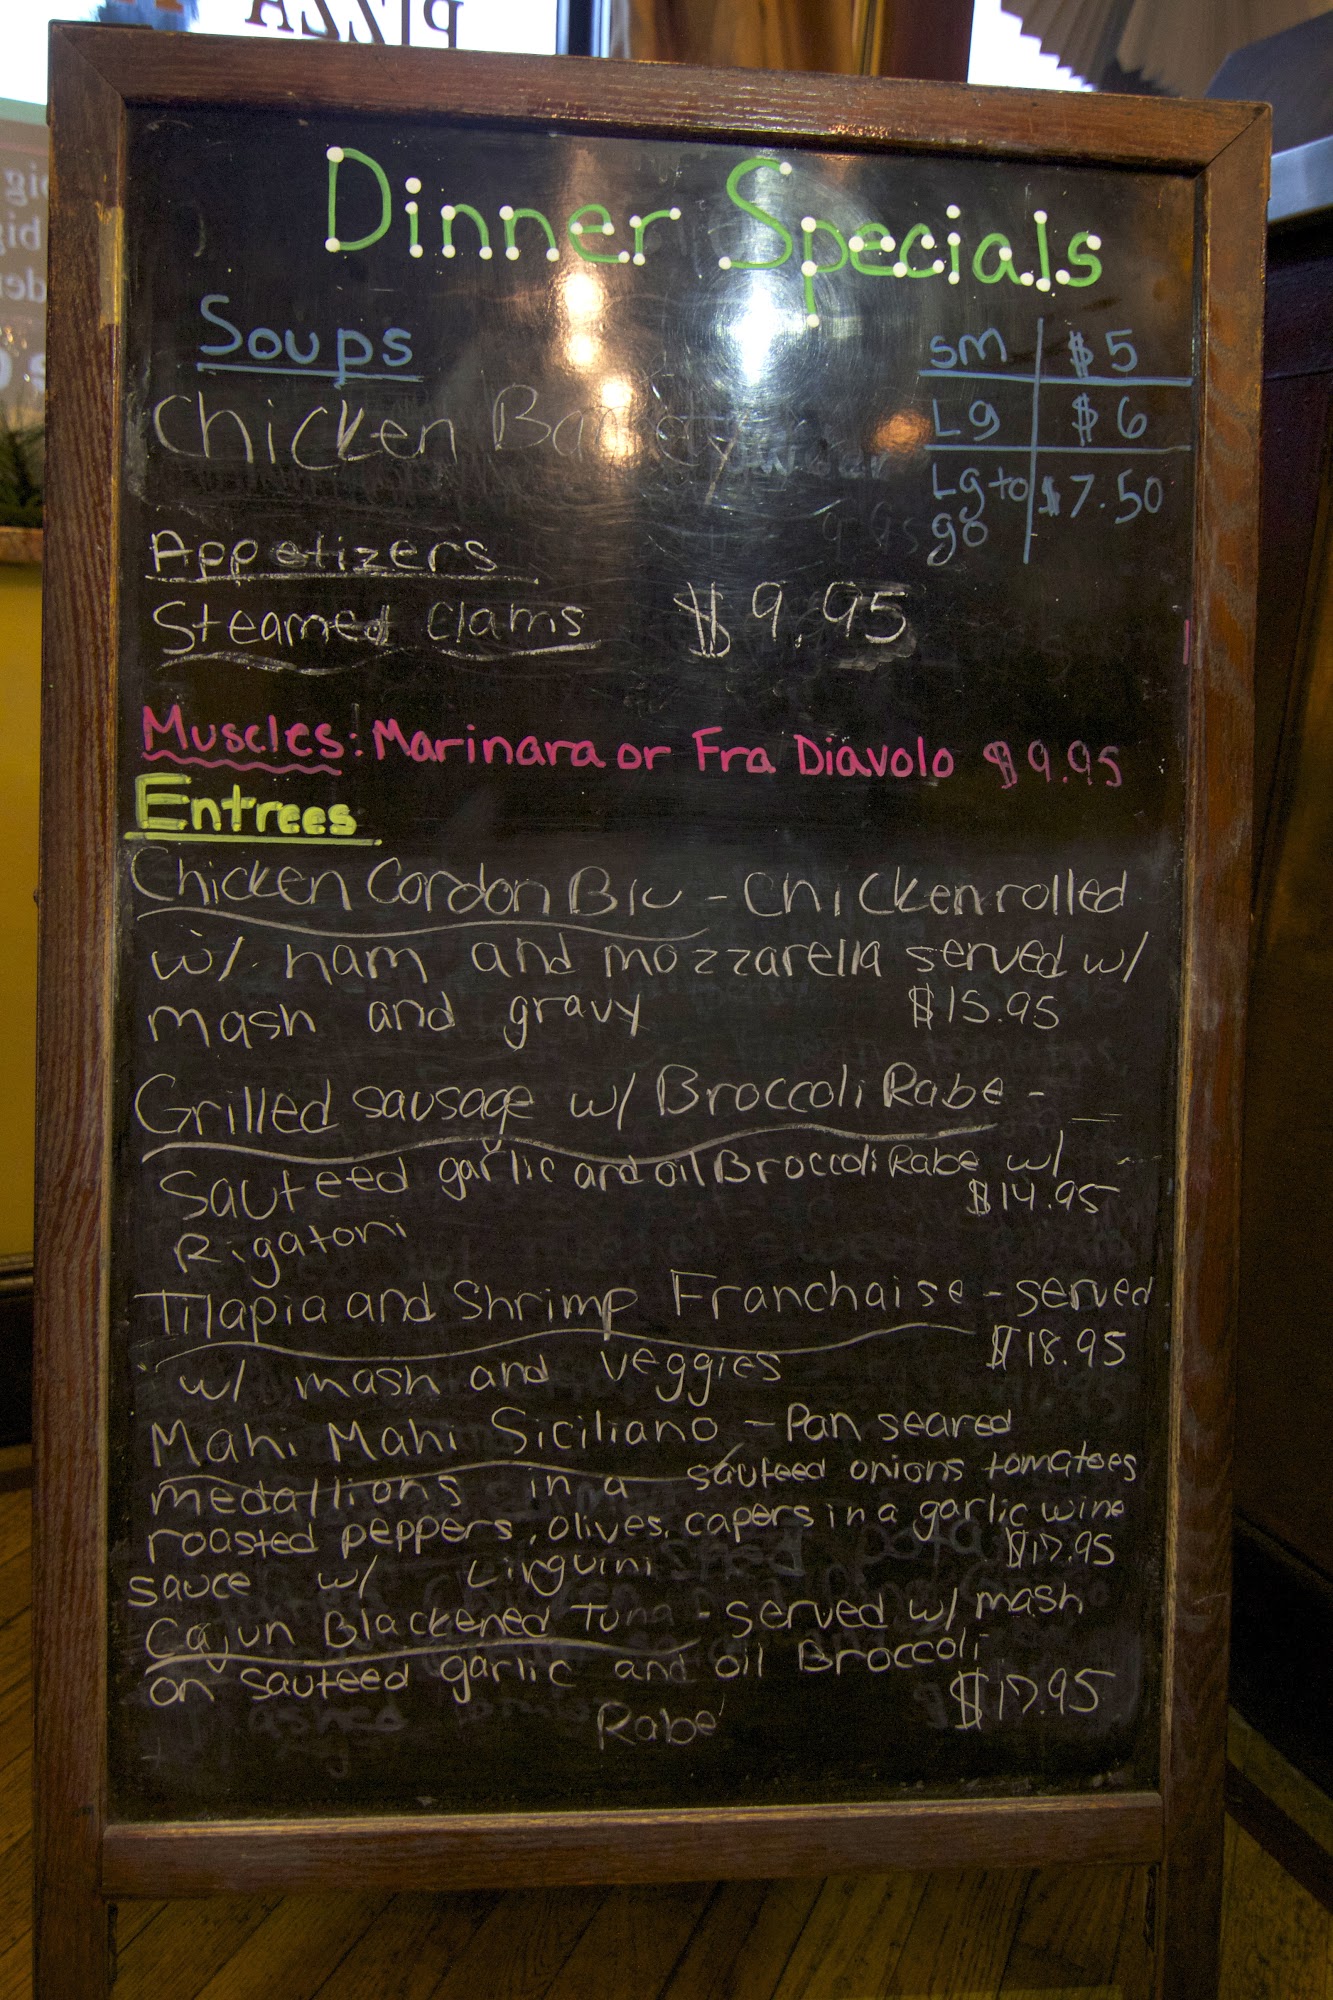 PIZZA
Dinner Specials
Soups
sm $5
Lg $6
Lg to go $7.50
Chicken Barley
Appetizers
Steamed Clams $9.95
Muscles: Marinara or Fra Diavolo $9.95
Entrees
Chicken Cordon Blu - Chicken rolled
w/ ham and mozzarella served w/
mash and gravy $15.95
Grilled sausage w/ Broccoli Rabe -
Sauteed garlic and oil Broccoli Rabe w/
$14.95
Rigatoni
Tilapia and Shrimp Franchaise - served
$18.95
w/ mash and veggies
Mahi Mahi Siciliano - Pan seared
medallions in a sauteed onions tomatoes
roasted peppers, olives, capers in a garlic wine
sauce w/ Linguini $17.95
Cajun Blackened Tuna - served w/ mash
on sauteed garlic and oil Broccoli
Rabe $17.95